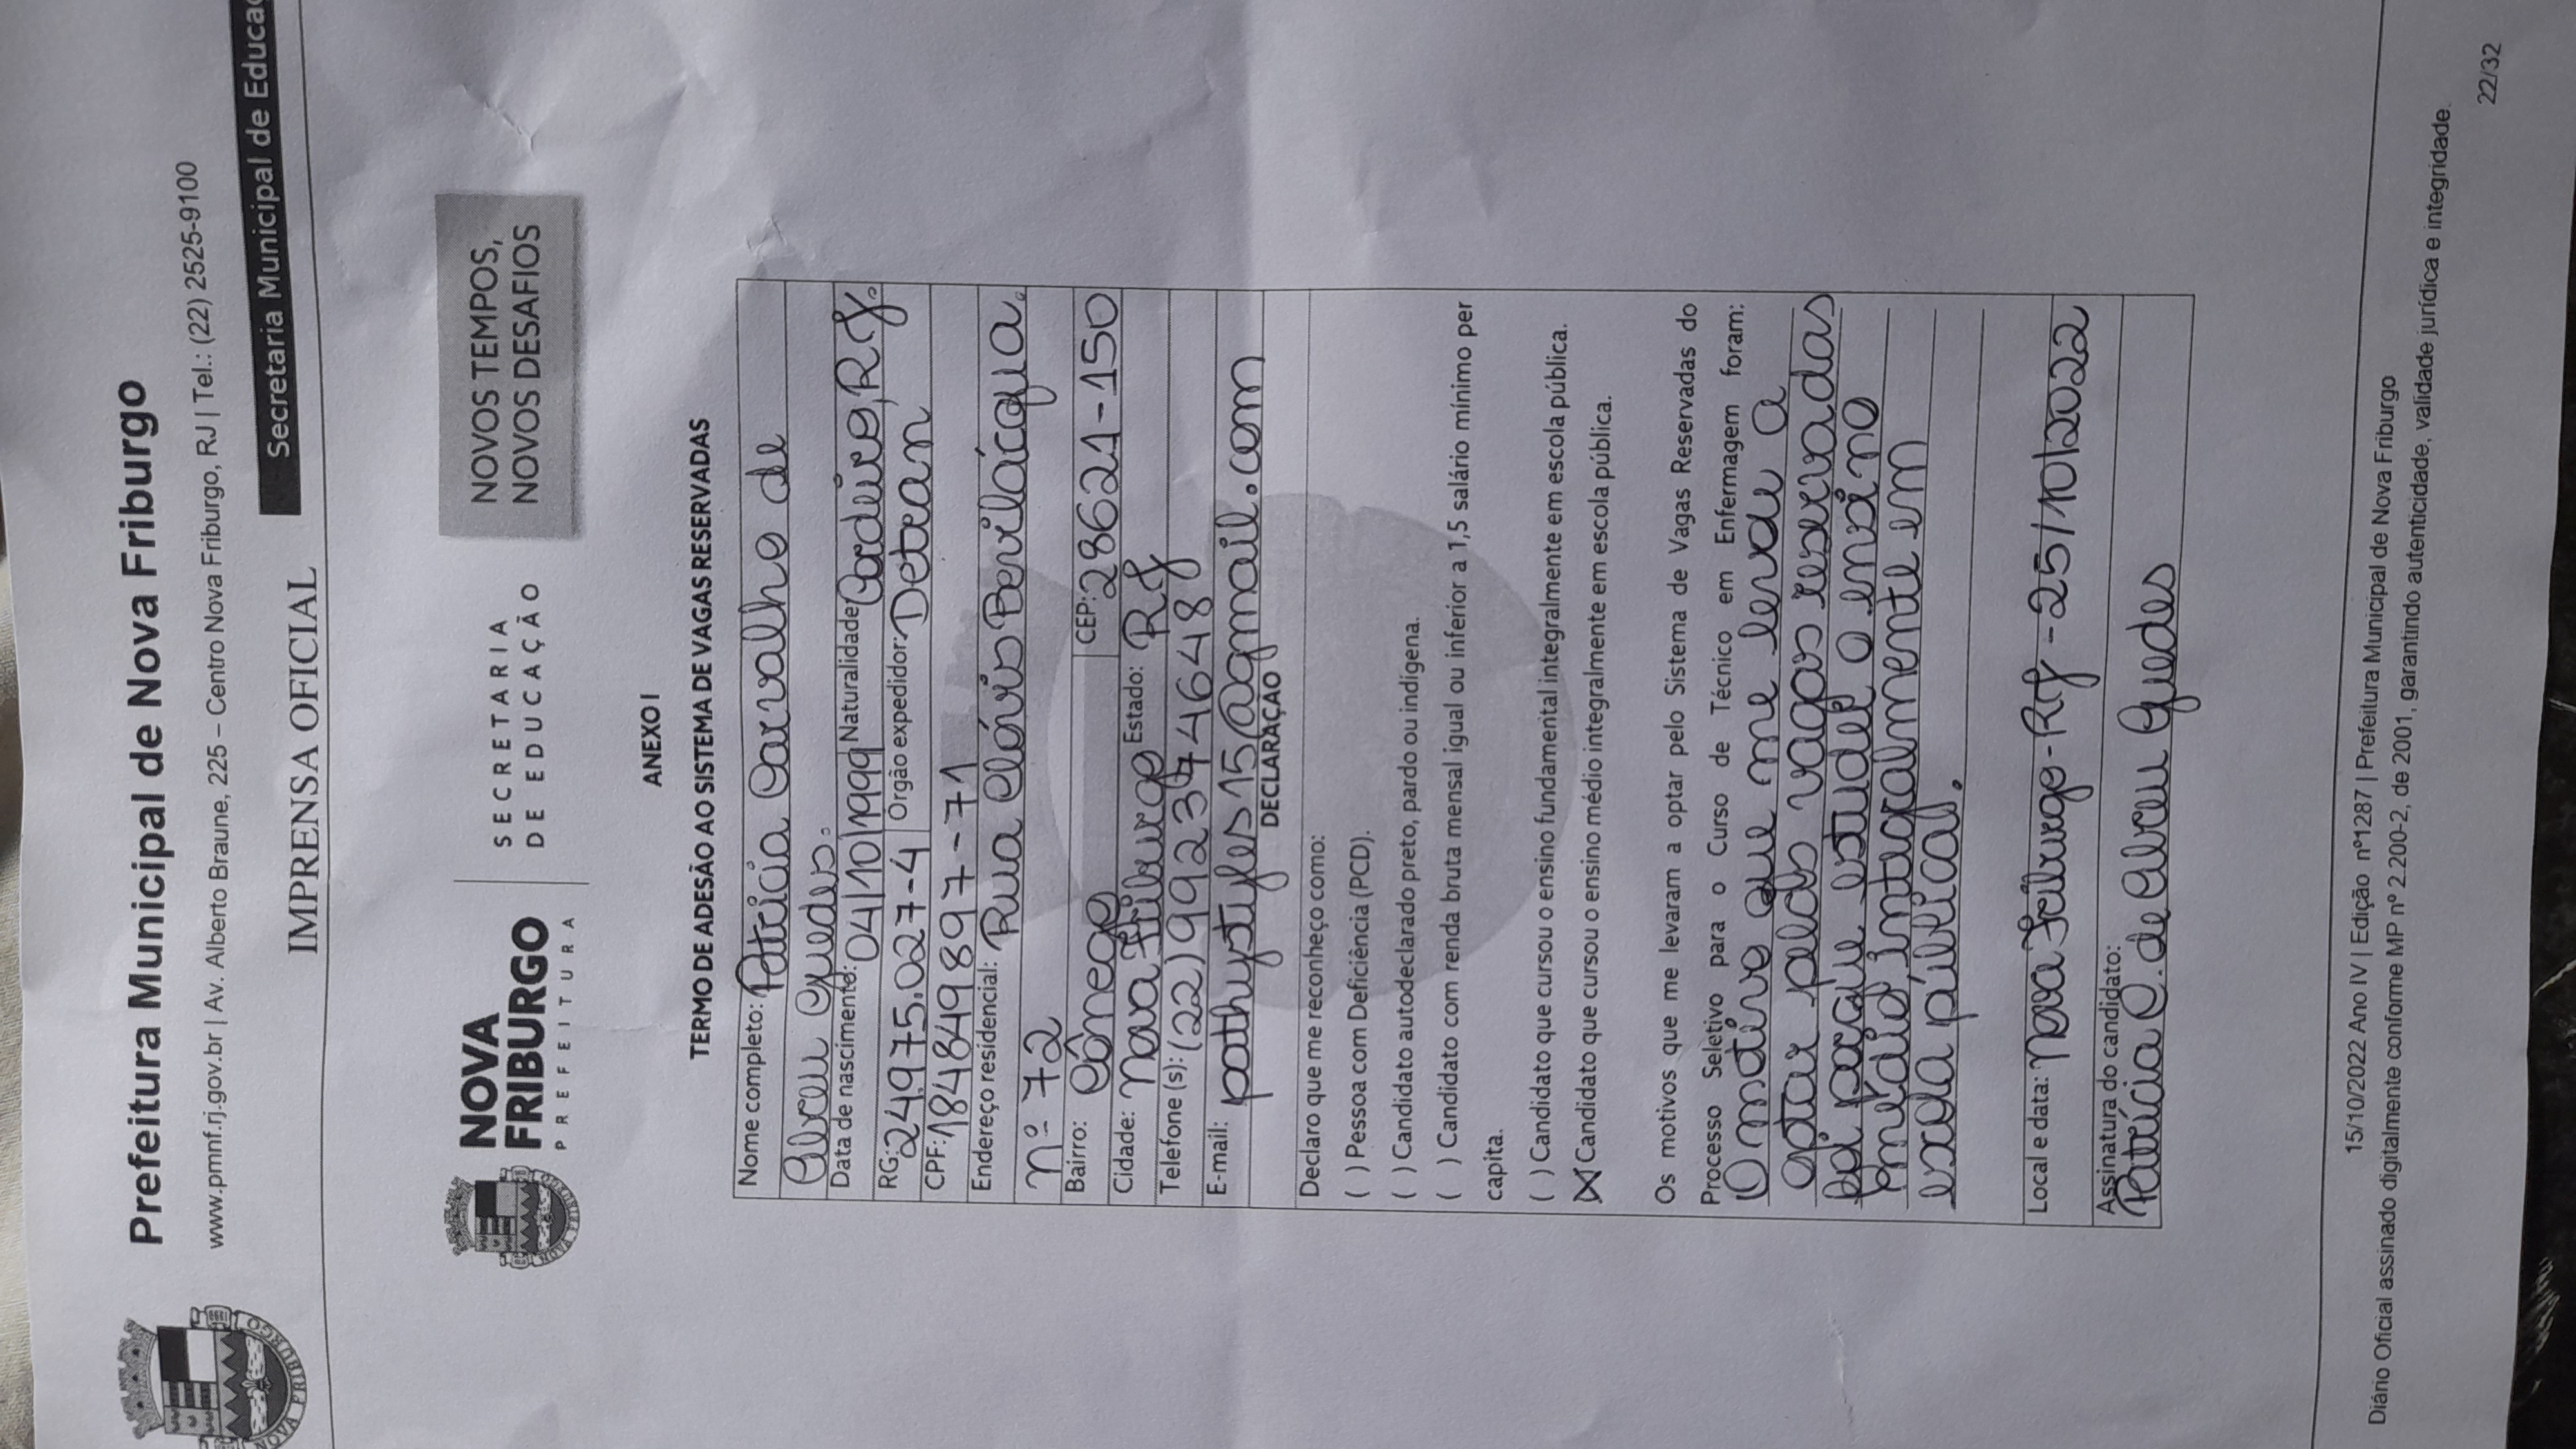 Prefeitura Municipal de Nova Friburgo
www.pmnf.rj.gov.br | Av. Alberto Braune, 225 – Centro Nova Friburgo, RJ | Tel.: (22) 2525-9100
Secretaria Municipal de Educaç
IMPRENSA OFICIAL
NOVA FRIBURGO
NOVA
FRIBURGO
PREFEITURA
SECRETARIA
DE EDUCAÇÃO
NOVOS TEMPOS,
NOVOS DESAFIOS
ANEXO I
TERMO DE ADESÃO AO SISTEMA DE VAGAS RESERVADAS
Nome completo: Patricia Carvalho de
Abreu Guedes.
Data de nascimento: 04/10/1999 Naturalidade: Cordeiro, RJ.
RG: 24.975.027-4 Órgão expedidor: Detran
CPF: 184849897-71
Endereço residencial: Rua Clóvis Bevilácqua.
nº 72
Bairro: Cônego CEP: 28621-150
Cidade: Nova Friburgo Estado: RJ
Telefone (s): (22) 992374648
E-mail: pathystyles15@gmail.com
DECLARAÇÃO
Declaro que me reconheço como:
( ) Pessoa com Deficiência (PCD).
( ) Candidato autodeclarado preto, pardo ou indígena.
( ) Candidato com renda bruta mensal igual ou inferior a 1,5 salário mínimo per
capita.
( ) Candidato que cursou o ensino fundamental integralmente em escola pública.
(X) Candidato que cursou o ensino médio integralmente em escola pública.
Os motivos que me levaram a optar pelo Sistema de Vagas Reservadas do
Processo Seletivo para o Curso de Técnico em Enfermagem foram:
O motivo que me levou a
optar pelas vagas reservadas
foi porque estudei o ensino
médio, integralmente em
escola pública.
Local e data: Nova Friburgo - RJ - 25/10/2022
Assinatura do candidato:
Patrícia C. de Abreu Guedes
15/10/2022 Ano IV | Edição nº1287 | Prefeitura Municipal de Nova Friburgo
Diário Oficial assinado digitalmente conforme MP nº 2.200-2, de 2001, garantindo autenticidade, validade jurídica e integridade.
22/32